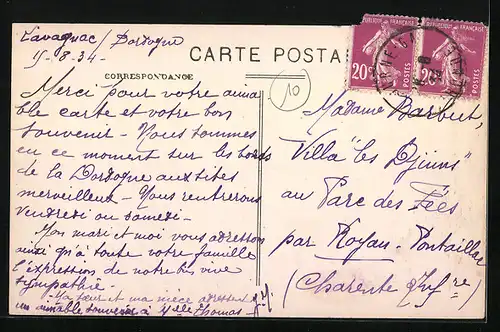 Lavagnac / Dordogne
15-8-34-
CARTE POSTA
CORRESPONDANCE
10
REPUBLIQUE FRANÇAISE
20c
POSTES
20c
POSTES
Merci pour votre aima
ble carte et votre bon
souvenir - Nous sommes
en ce moment sur les bords
de la Dordogne aux sites
merveilleux - Nous rentrerons
vendredi ou samedi -
Mon mari et moi vous adressons
ainsi qu'à toute votre famille
l'expression de notre bien vive
sympathie -
Ma sœur et ma nièce adressent
un aimable souvenir à Melle Thomas
Madame Barbut,
Villa "les Djinns"
au Parc des Fées
par Royan - Pontaillac
(Charente Infre)